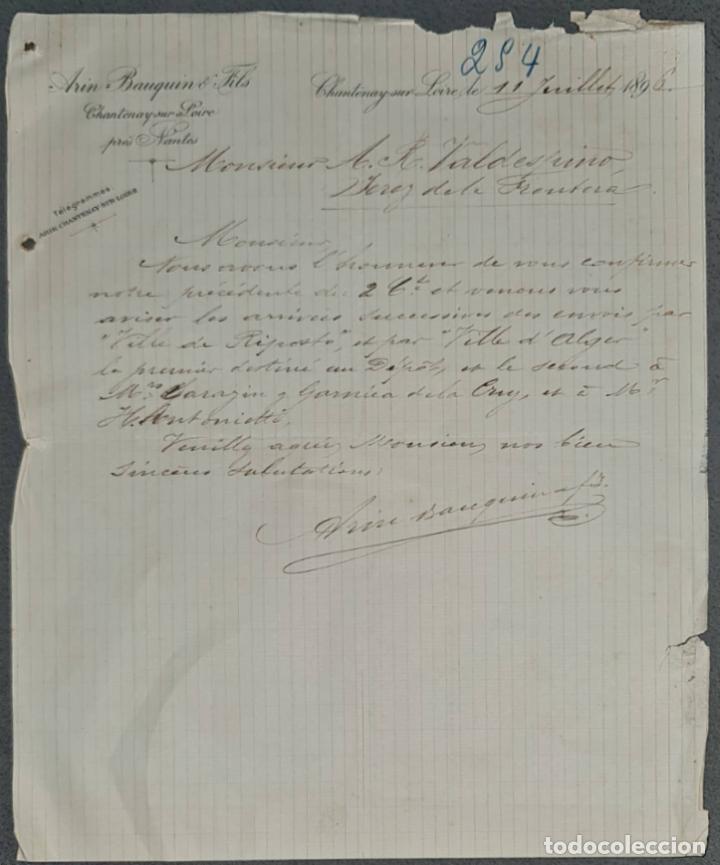 254
Arin Bauquin & Fils
Chantenay-sur-Loire
près Nantes
Telegrammes
ARIN CHANTENAY-SUR-LOIRE
Chantenay-sur-Loire, le 11 Juillet 1896.
Monsieur A. R. Valdespino,
Jerez de la Frontera.
Monsieur,
Nous avons l'honneur de vous confirmer
notre précédente du 2 Ct. et venons vous
aviser les arrivées successives des envois par
"Ville de Riposto", et par "Ville d'Alger"
le premier destiné au Dépôt, et le second à
Mrs Sarazin y Garnica de la Cruz, et à Mr.
H. Antonietti,
Veuillez agréer, Monsieur, nos bien
sincères salutations:
Arin Bauquin & fs.
todocoleccion